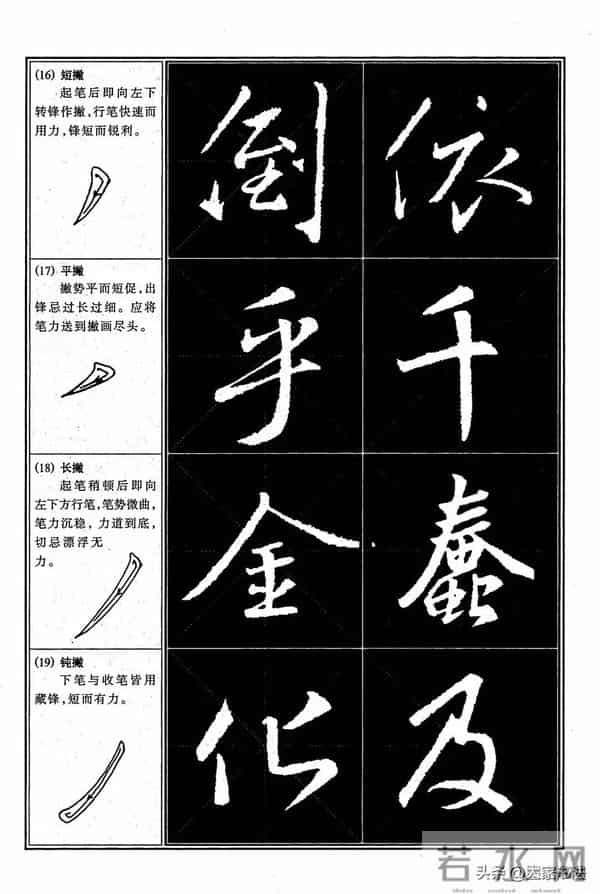 (16) 短撇
起笔后即向左下
转锋作撇，行笔快速而
用力，锋短而锐利。
倒 依
(17) 平撇
撇势平而短促，出
锋忌过长过细。应将
笔力送到撇画尽头。
乎 千
(18) 长撇
起笔稍顿后即向
左下方行笔，笔势微曲，
笔力沉稳，力道到底，
切忌漂浮无
力。
金 蠢
(19) 钝撇
下笔与收笔皆用
藏锋，短而有力。
化 及
若水网
头条@